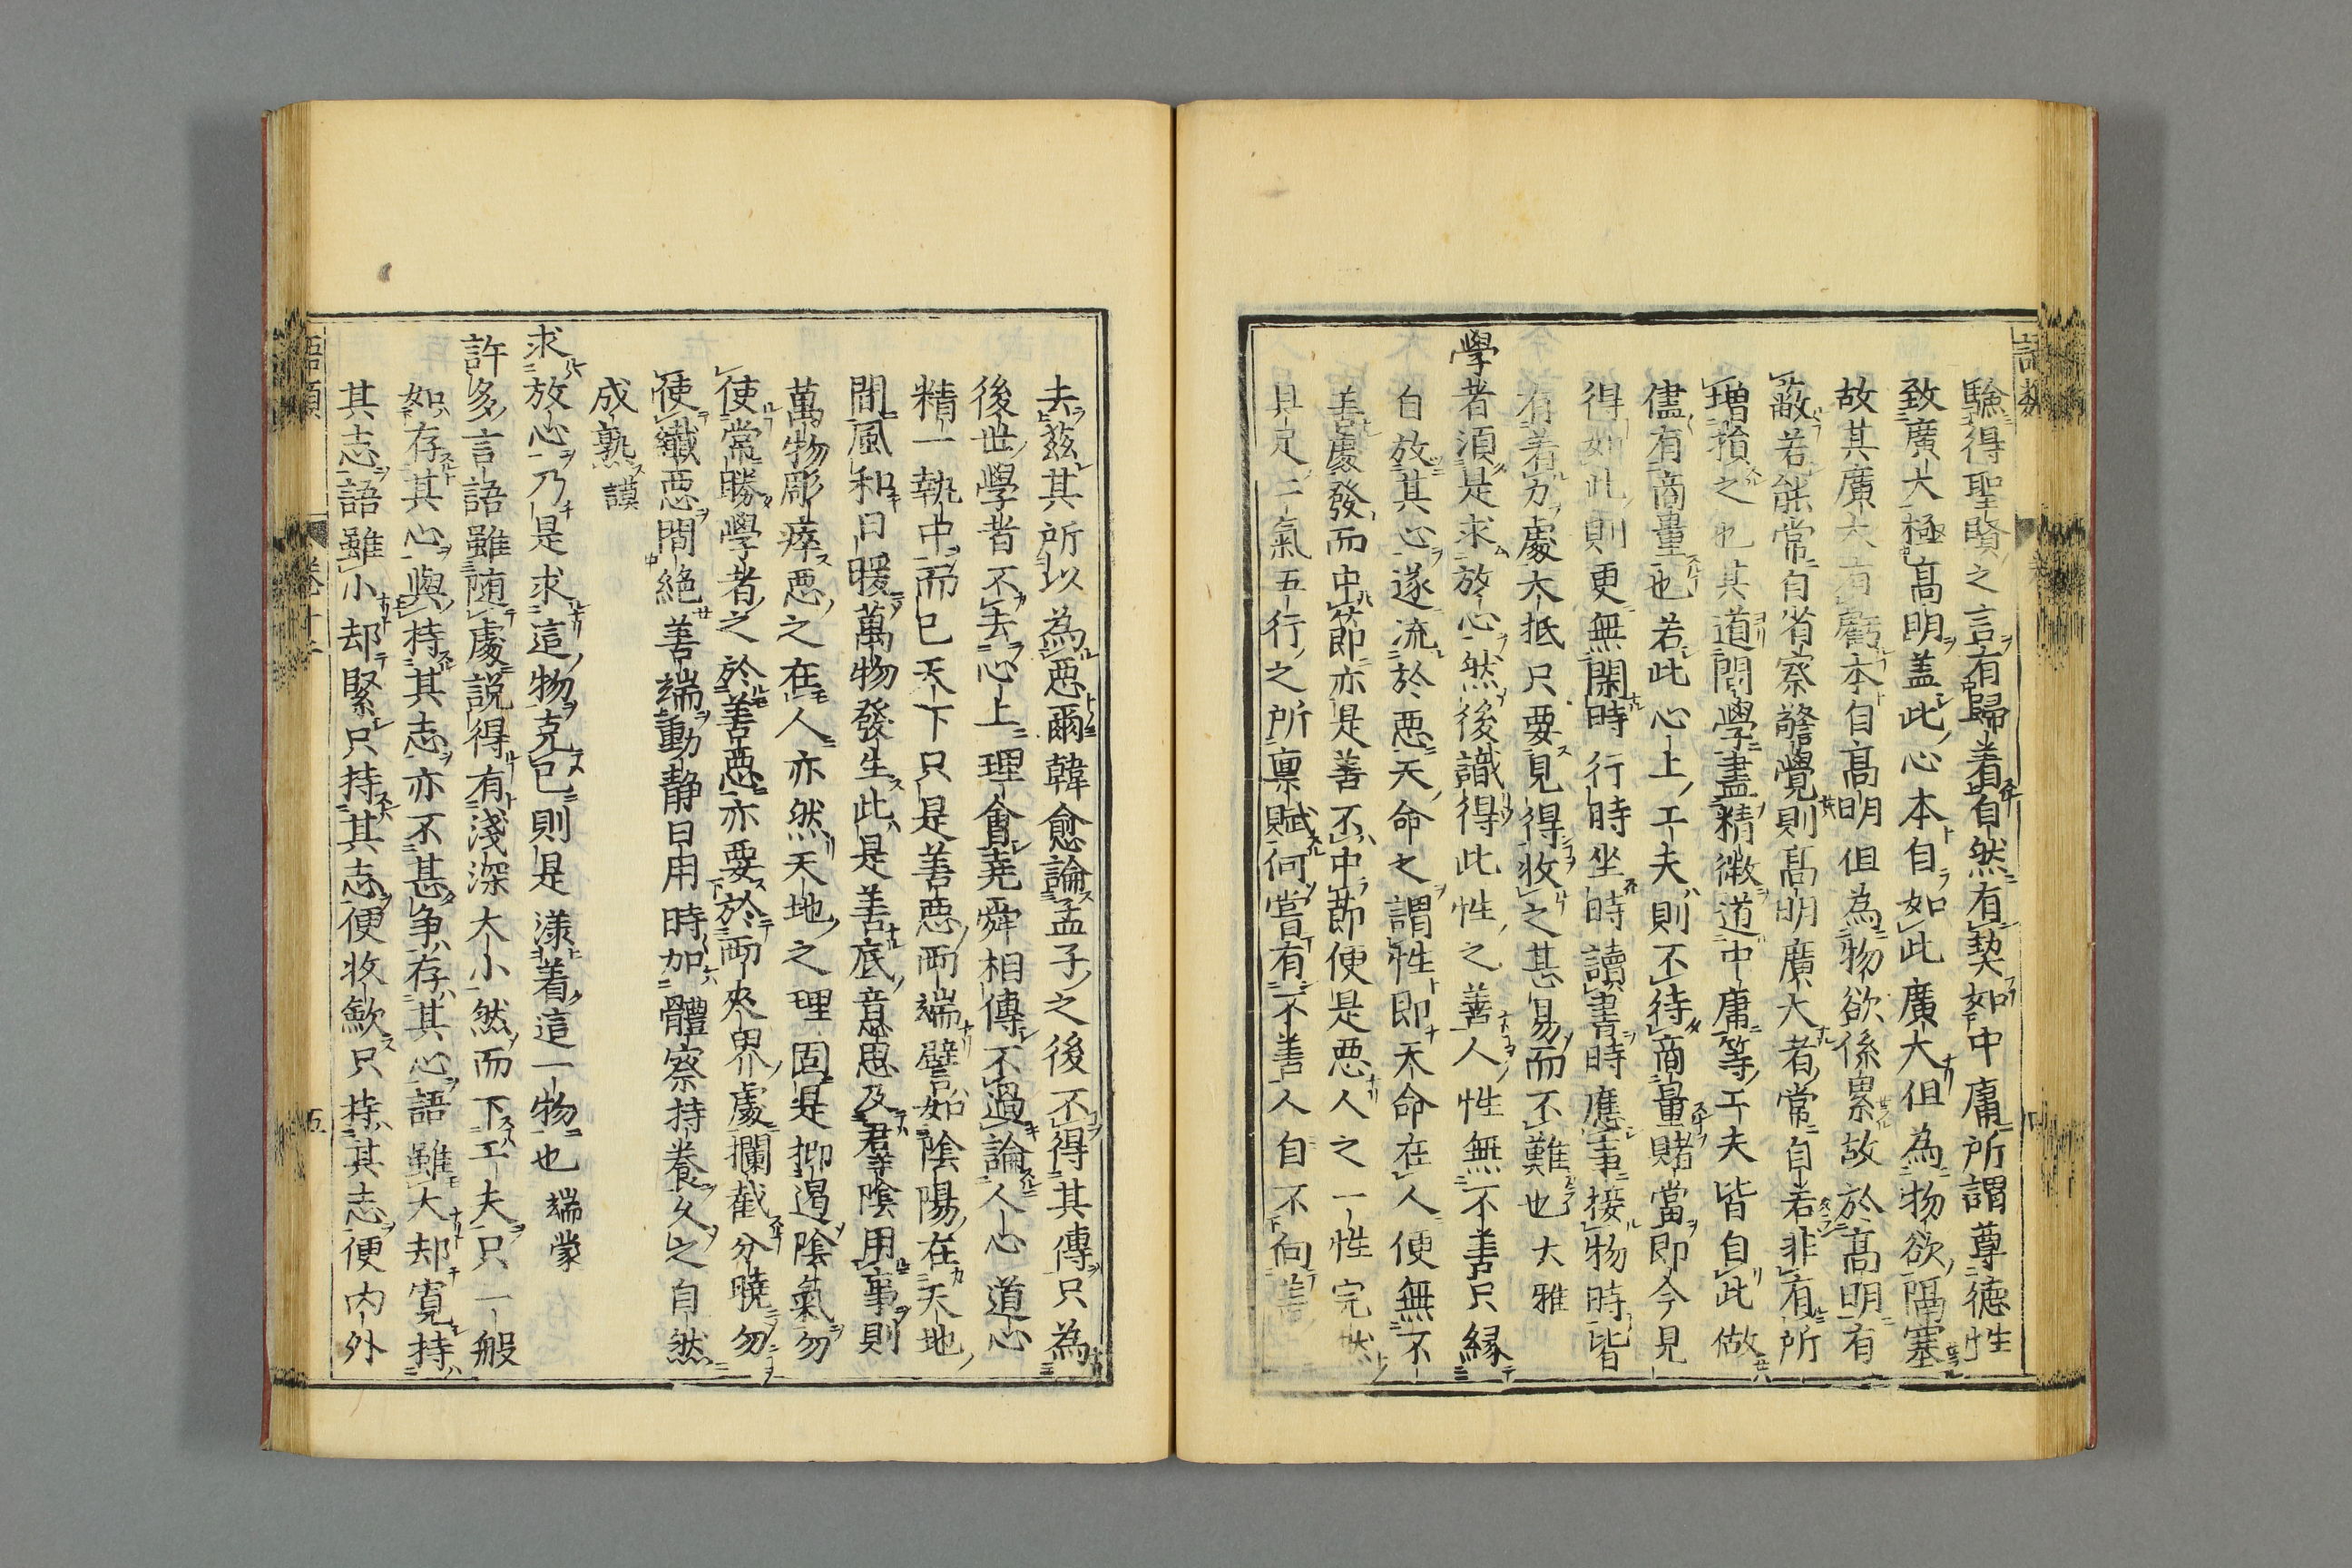 驗得聖賢之言有歸着自然有契如中庸所謂尊德性
致廣大極高明盖此心本自如此廣大但為物欲隔塞
故其廣大有虧本自高明但為物欲係累故於高明有
蔽若能常自省察警覺則高明廣大者常自若非有所
增損之也其道問學盡精微道中庸等工夫皆自此做
儘有商量也若此心上工夫則不待商量賭當即今見
得如此則更無閑時行時坐時讀書時應事接物時皆
有着力處大抵只要見得收之甚易而不難也 大雅
學者須是求放心然後識得此性之善人性無不善只緣
自放其心遂流於惡天命之謂性即天命在人便無不
善處發而中節亦是善不中節便是惡人之一性完然
具足二氣五行之所稟賦何嘗有不善人自不向善
去茲其所以為惡爾韓愈論孟子之後不得其傳只為
後世學者不去心上理會堯舜相傳不過論人心道心
精一執中而已天下只是善惡兩端譬如陰陽在天地
間風和日暖萬物發生此是善底意思及羣陰用事則
萬物彫瘁惡之在人亦然天地之理固是抑遏陰氣勿
使常勝學者之於善惡亦要於兩夾界處攔截分曉勿
使纖惡間絶善端動靜日用時加體察持養久之自然
成熟 謨
求放心乃是求這物克己則是漾着這一物也 端蒙
許多言語雖随處説得有淺深大小然而下工夫只一般
如存其心與持其志亦不甚争存其心語雖大却寛持
其志語雖小却緊只持其志便收歛只持其志便内外
語類 卷十二 五